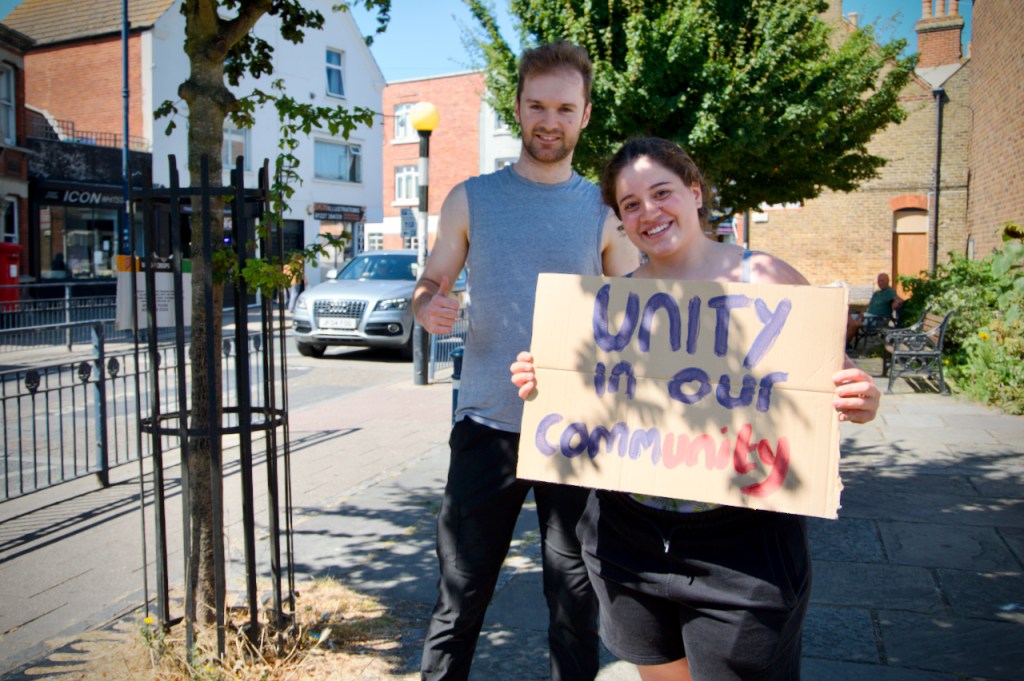 ICON
UNITY
in our
Community